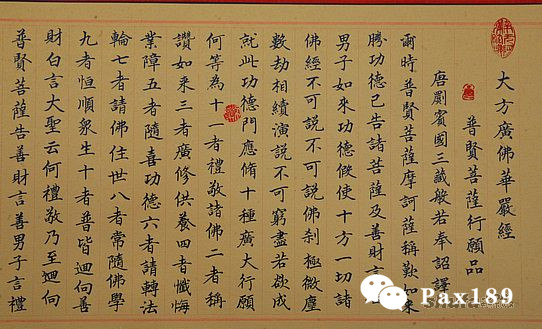 大方廣佛華嚴經
普賢菩薩行願品
唐罽賓國三藏般若奉詔譯
爾時普賢菩薩摩訶薩稱歎如来
勝功德已告諸菩薩及善財言
男子如来功德假使十方一切諸
佛經不可説不可説佛刹極微塵
數劫相續演説不可窮盡若欲成
就此功德門應脩十種廣大行願
何等為十一者禮敬諸佛二者稱
讚如来三者廣修供養四者懺悔
業障五者隨喜功德六者請轉法
輪七者請佛住世八者常隨佛學
九者恒順衆生十者普皆迴向善
財白言大聖云何禮敬乃至迴向
普賢菩薩告善財言善男子言禮
Pax189